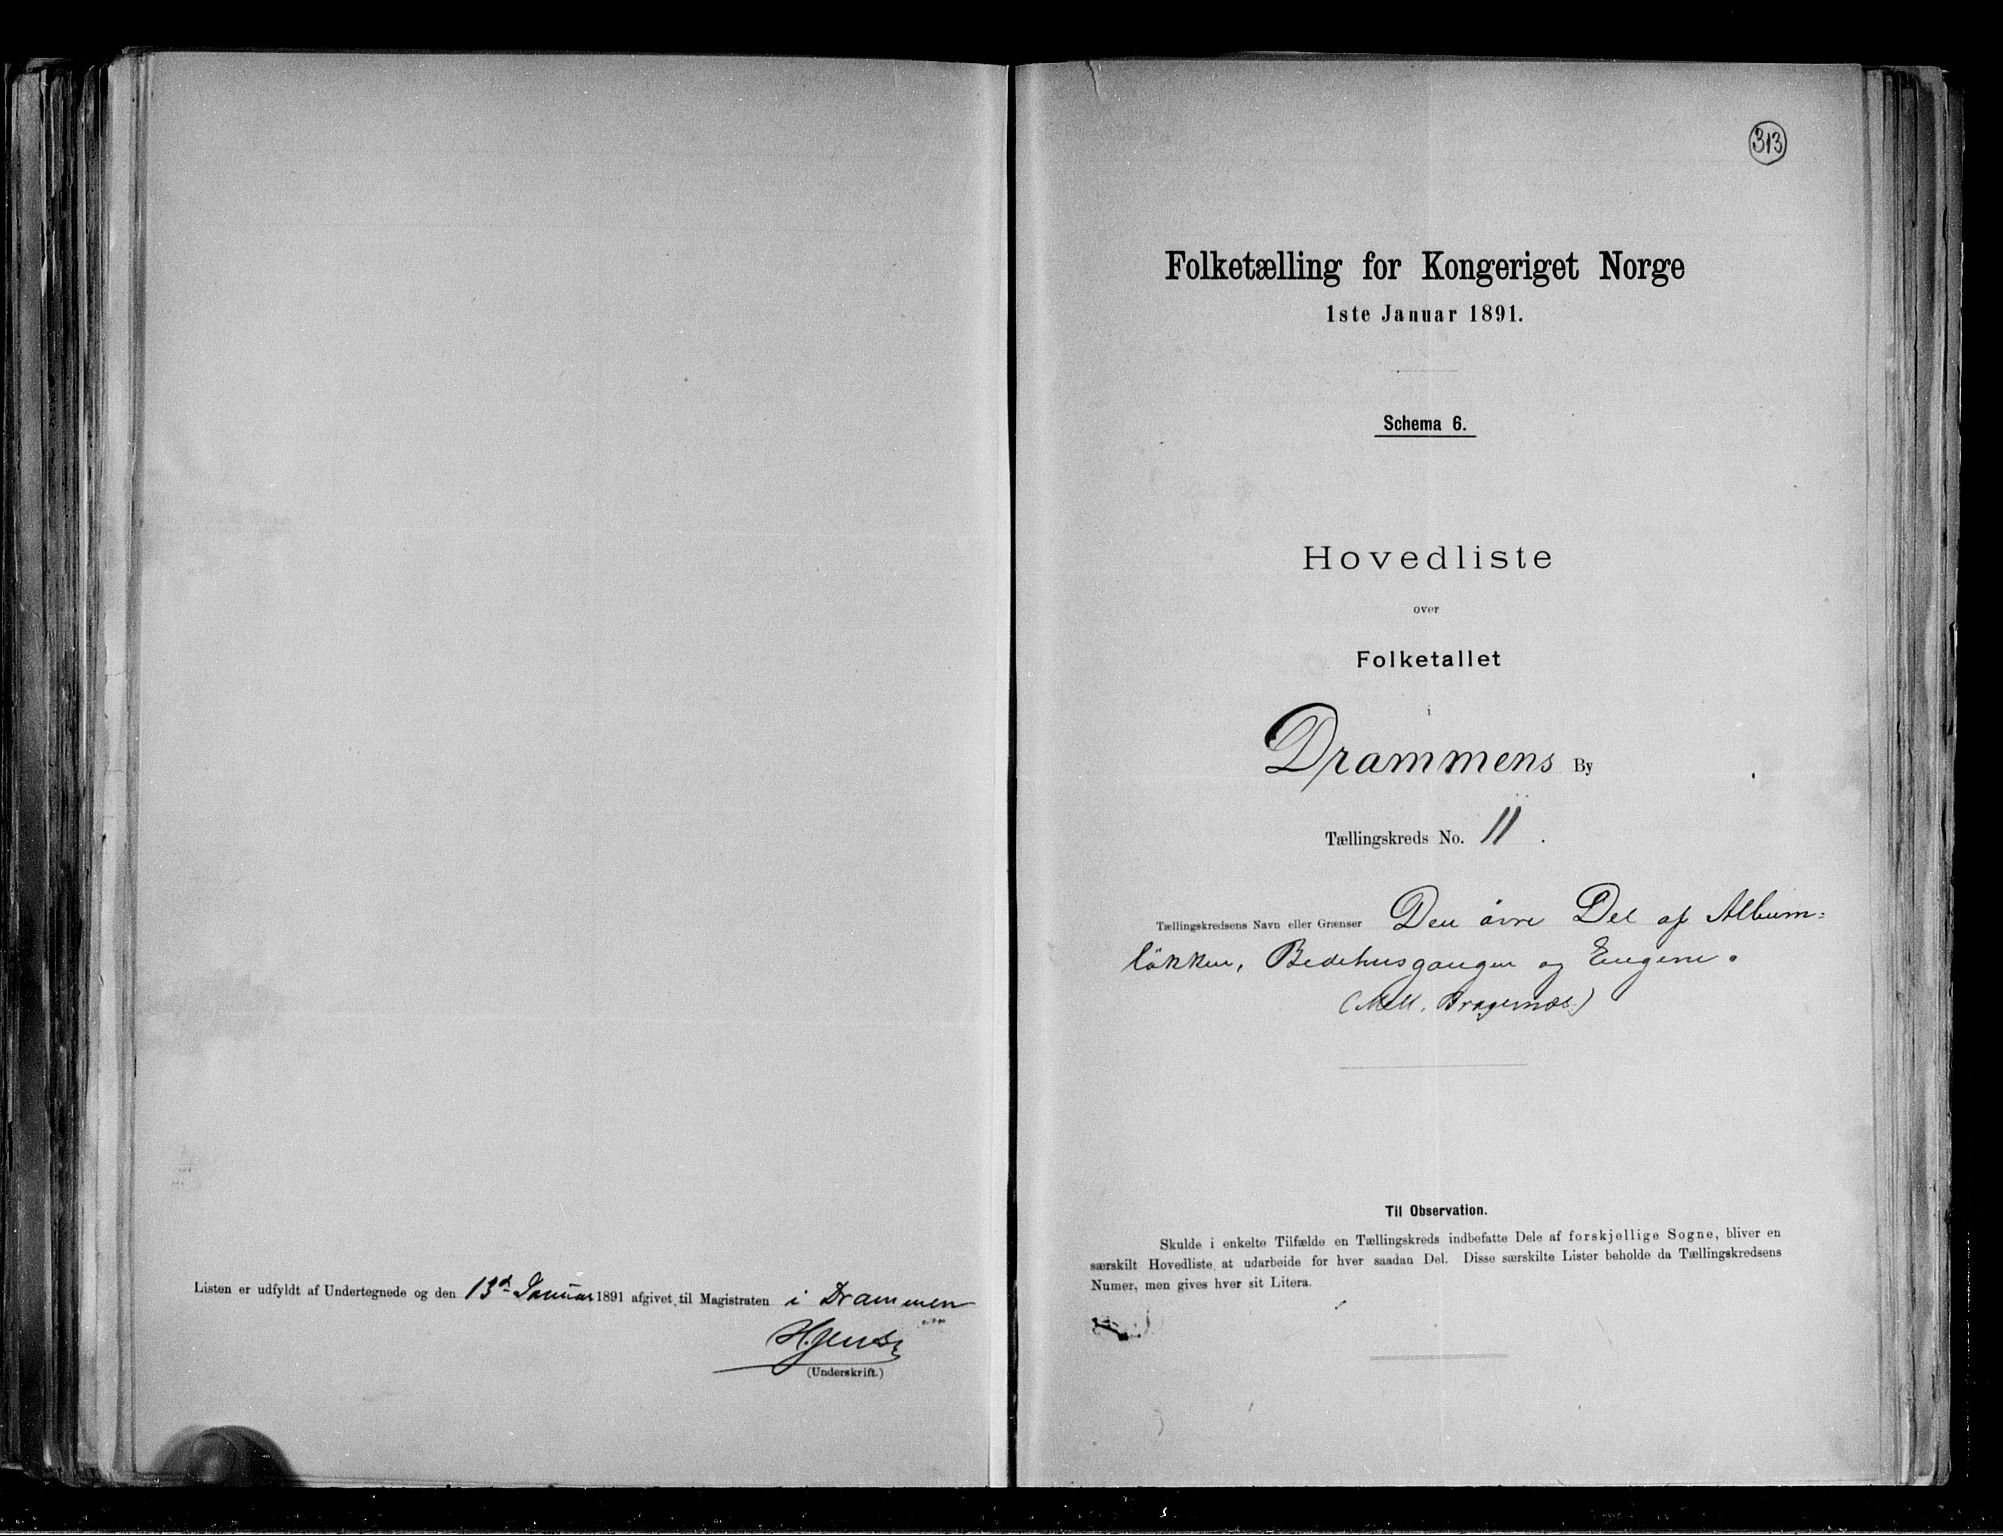 Listen er udfyldt af Undertegnede og den 13d Januar 1891 afgivet til Magistraten i Drammen
(Underskrift.)
313
Folketælling for Kongeriget Norge
1ste Januar 1891.
Schema 6.
Hovedliste
over
Folketallet
i
Drammens By
Tællingskreds No. 11.
Tællingskredsens Navn eller Grænser Den övre Del af Album=
lökken, Bedehusgangen og Engene.
(Mell. Bragernæs)
Til Observation.
Skulde i enkelte Tilfælde en Tællingskreds indbefatte Dele af forskjellige Sogne, bliver en
særskilt Hovedliste at udarbeide for hver saadan Del. Disse særskilte Lister beholde da Tællingskredsens
Numer, men gives hver sit Litera.